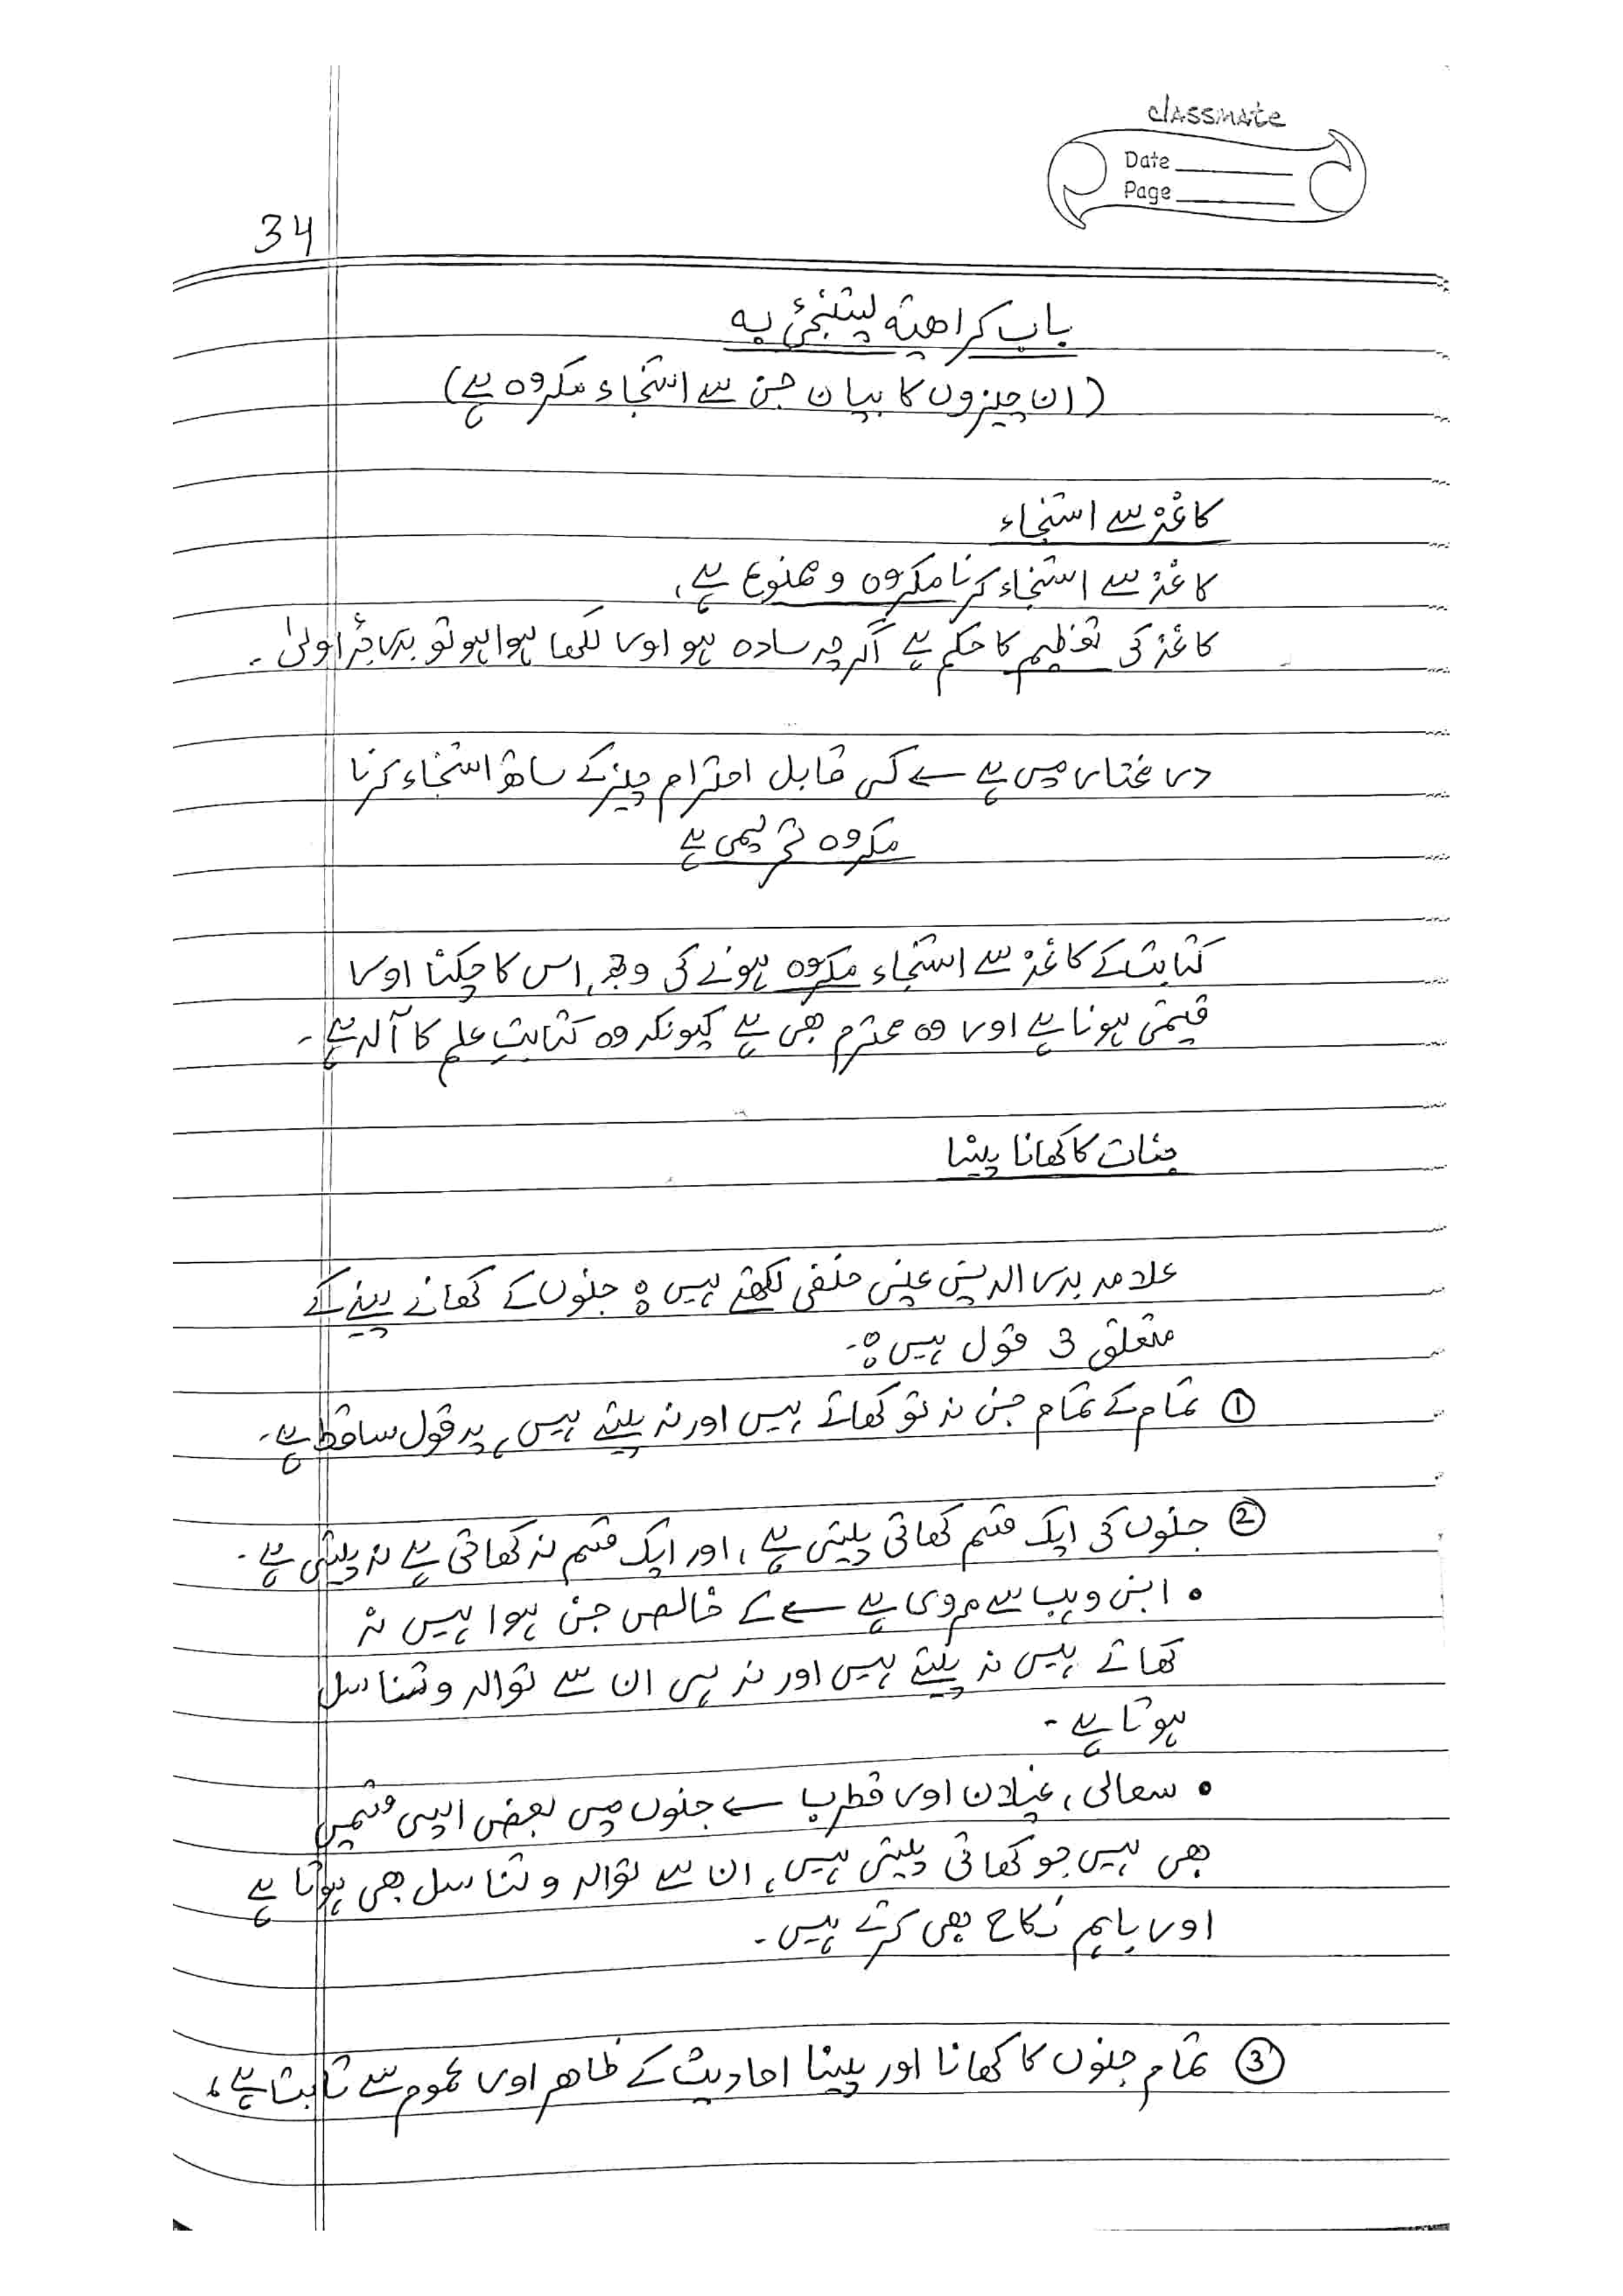 classmate
Date
Page
34
باب کراھیۃ یستنجیٔ بہ
(ان چیزوں کا بیان جن سے استنجاء مکروہ ہے)
کاغذ سے استنجاء
کاغذ سے استنجاء کرنا مکروہ و ممنوع ہے،
کاغذ کی تعظیم کا حکم ہے اگرچہ سادہ ہو اور لکھا ہوا ہو تو بدرجۂ اولیٰ ۔
در مختار میں ہے کسی قابل احترام چیز کے ساتھ استنجاء کرنا
مکروہ تحریمی ہے
کتابت کے کاغذ سے استنجاء مکروہ ہونے کی وجہ، اس کا چکنا اور
قیمتی ہونا ہے اور وہ محترم بھی ہے کیونکہ وہ کتابتِ علم کا آلہ ہے ۔
جنات کا کھانا پینا
علامہ بدر الدین عینی حنفی لکھتے ہیں : جنوں کے کھانے پینے کے
متعلق 3 قول ہیں :۔
① تمام کے تمام جن نہ تو کھاتے ہیں اور نہ پیتے ہیں، یہ قول ساقط ہے۔
② جنوں کی ایک قسم کھاتی پیتی ہے، اور ایک قسم نہ کھاتی ہے نہ پیتی ہے ۔
• ابن وہب سے مروی ہے کے خالص جن ہوا ہیں نہ
کھاتے ہیں نہ پیتے ہیں اور نہ ہی ان سے توالد و تناسل
ہوتا ہے ۔
• سعالی، غیلان اور قطرب جنوں میں بعض ایسی قسمیں
بھی ہیں جو کھاتی پیتی ہیں، ان سے توالد و تناسل بھی ہوتا ہے
اور باہم نکاح بھی کرتے ہیں ۔
③ تمام جنوں کا کھانا اور پینا احادیث کے ظاھر اور عموم سے ثابت ہے،